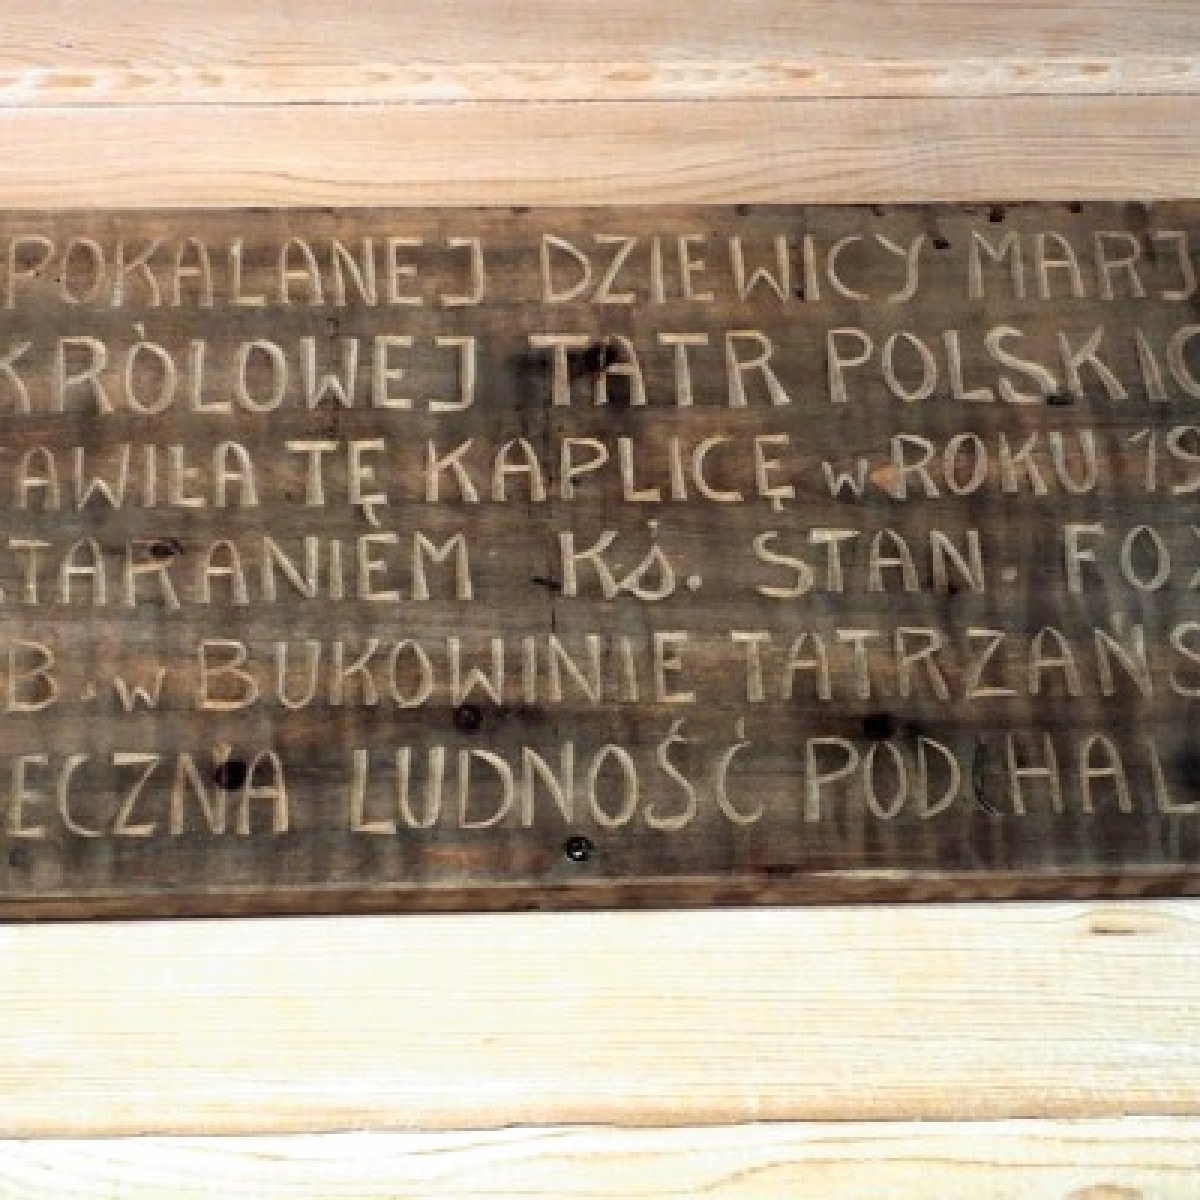 POKALANEJ DZIEWICY MARJ
KRÓLOWEJ TATR POLSKIC
AWIŁA TĘ KAPLICĘ w ROKU 19
TARANIEM Kś. STAN. FOX
B. w BUKOWINIE TATRZAŃS
ECZNA LUDNOŚĆ PODHAL